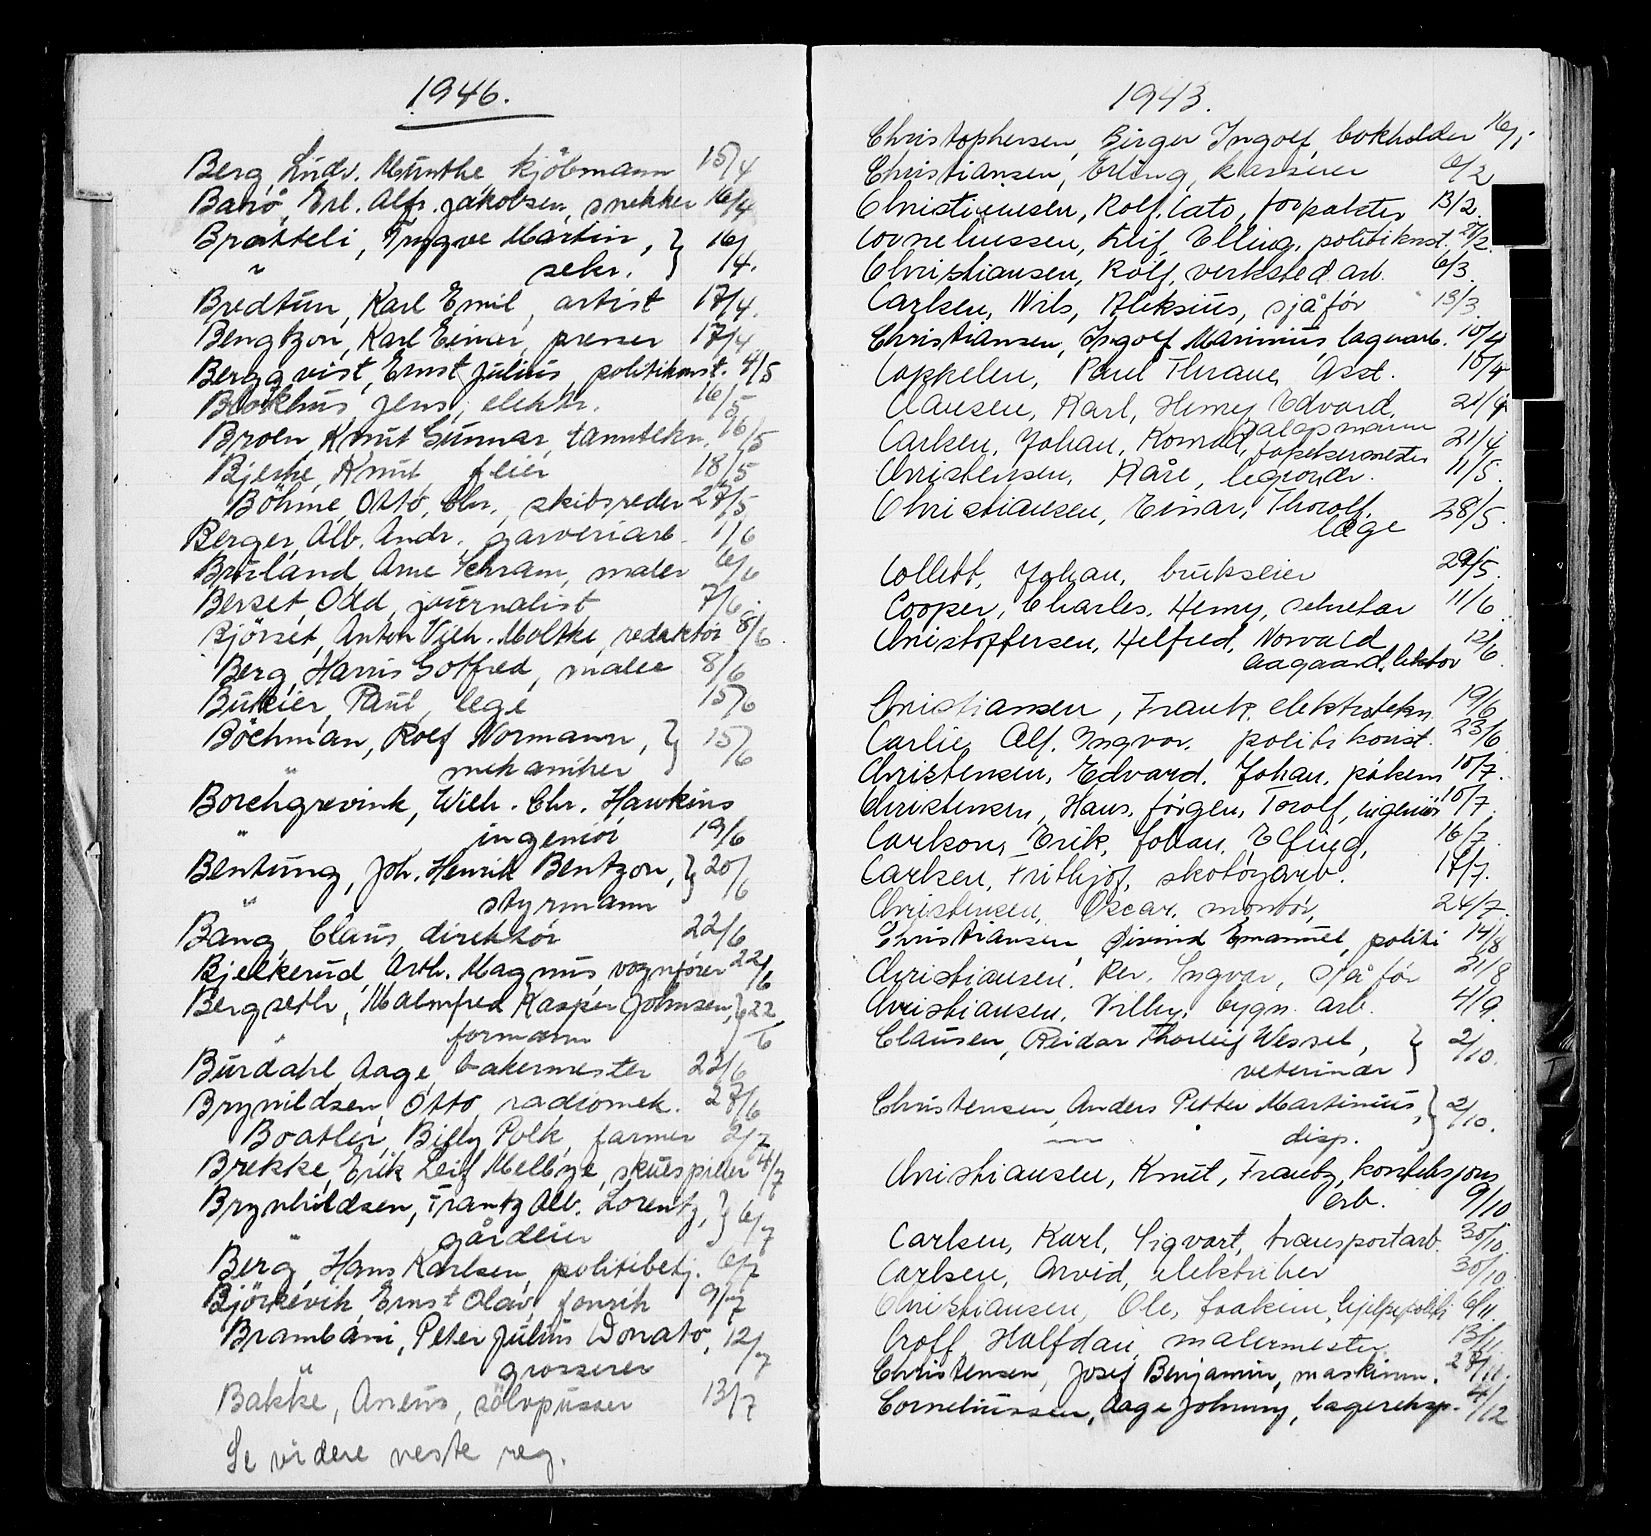 1946.
Berg, Ludv. Munthe kjöbmann 15/4
Barö, Erl. Alfr. Jakobsen, snekker 16/4
Bratteli, Trygve Martin, } 16/4.
" sekr.
Bredtun, Karl Emil, artist 17/4.
Bengtzon, Karl Einar, presser 17/4
Bergqvist, Ernst Julius, politikonst. 4/5
Blokhus, Jens, elektr. 16/5
Broen, Knut Gunnar, tanntekn. 16/5
Bjerke, Knut feier 18/5
Böhme, Otto, Chr., skibsreder 27/5
Berger, Alb. Andr. garveriarb. 1/6
Bruland, Arne Schram, maler 6/6
Berset, Odd, journalist 7/6.
Björset, Anton Vilh. Moltke, redaktör 8/6.
Berg, Harris Gotfred, maler 8/6
Paul, lege 15/6
Böchman, Rolf Normann, } 15/6
" mekaniker
Borchgrevink, Wilh. Chr. Hawkins
" ingeniör 19/6
Bentung, Joh. Henrik Bentzon, } 20/6
" styrmann
Bang, Claus, direktör 22/6
Bjelkerud, Arth. Magnus, vognförer 22/6
Bergseth, Malmfred Kasper Johnsen, } 22/6
" formann
Burdahl, Aage, bakermester 22/6
Brynildsen, Otto, radiomek. 27/6
Boatler, Billy Polk, farmer 2/7
Brekke, Erik Leif Mellbye, skuespiller 4/7
Brynhildsen, Frantz Alb. Lorentz, } 6/7
" gårdeier
Berg, Hans Karlsen, politibetj. 6/7
Björkevik, Ernst Olav, 9/7
Brambani, Peter Julius Donato, 12/7
" grosserer
Bakke, Aneus, sölvpusser 13/7
Se videre neste reg.
1943.
Christophersen, Birger Ingolf, bokholder 16/1
Christiansen, Erling, kasserer 6/2
Christiansen, Rolf. Cato, forpakter 13/2.
Corneliussen, Leif, Elling, politikonst. 27/2.
Christiansen, Rolf, verksted arb. 6/3.
Carlsen, Nils, Aleksius, sjåför 13/3.
Christiansen, Ingolf Marinius, lagerarb. 10/4
Cappelen, Paul Thrane, Asst. 10/4
Clausen, Karl, Henry, Edvard, 21/4
Carlsen, Johan, Konrad, tapetsermester 21/4
Christensen, Kåre, legionær. 11/5.
Christiansen, Einar, Thorolf, 28/5.
læge
Collett, Johan, brukseier 29/5.
Cooper, Charles, Henry, sekretær 11/6.
Christoffersen, Helfred, Norvald 12/6.
Aagaard, lektor
Christiansen, Frank, elektrotekn. 19/6
Carlie, Alf. Ingvar. politikonst. 23/6.
Christensen, Edvard. Johan, 10/7.
Christensen, Hans, Jörgen, Torolf, ingeniör 10/7.
Carlson, Erik, Johan, 16/7.
Carlsen, Frithjof, skotöyarb. 17/7.
Christensen, Oscar, montör, 24/7.
Christiansen, Øivind Emanuel, politi 14/8
Christiansen, Per. Ingvar, sjåför 21/8
Christiansen, Villy, bygn. arb. 4/9.
Clausen, Reidar Thorleif Wessel, } 2/10.
veterinær
Christensen, Anders Petter Martinius, } 2/10.
— " — disp.
Christiansen, Knut, Frantz,
arb. 9/10.
Carlsen, Karl, Sigvart, transportarb. 30/10.
Carlsen, Arvid, elektriker 30/10.
Christiansen, Ole, Joakim, hjelpepoliti 6/11.
Croff, Halfdan, malermester 13/11.
Christensen, Josef Benjamin, maskinm. 27/11.
Corneliussen, Aage Johnny, lagereksp. 4/12